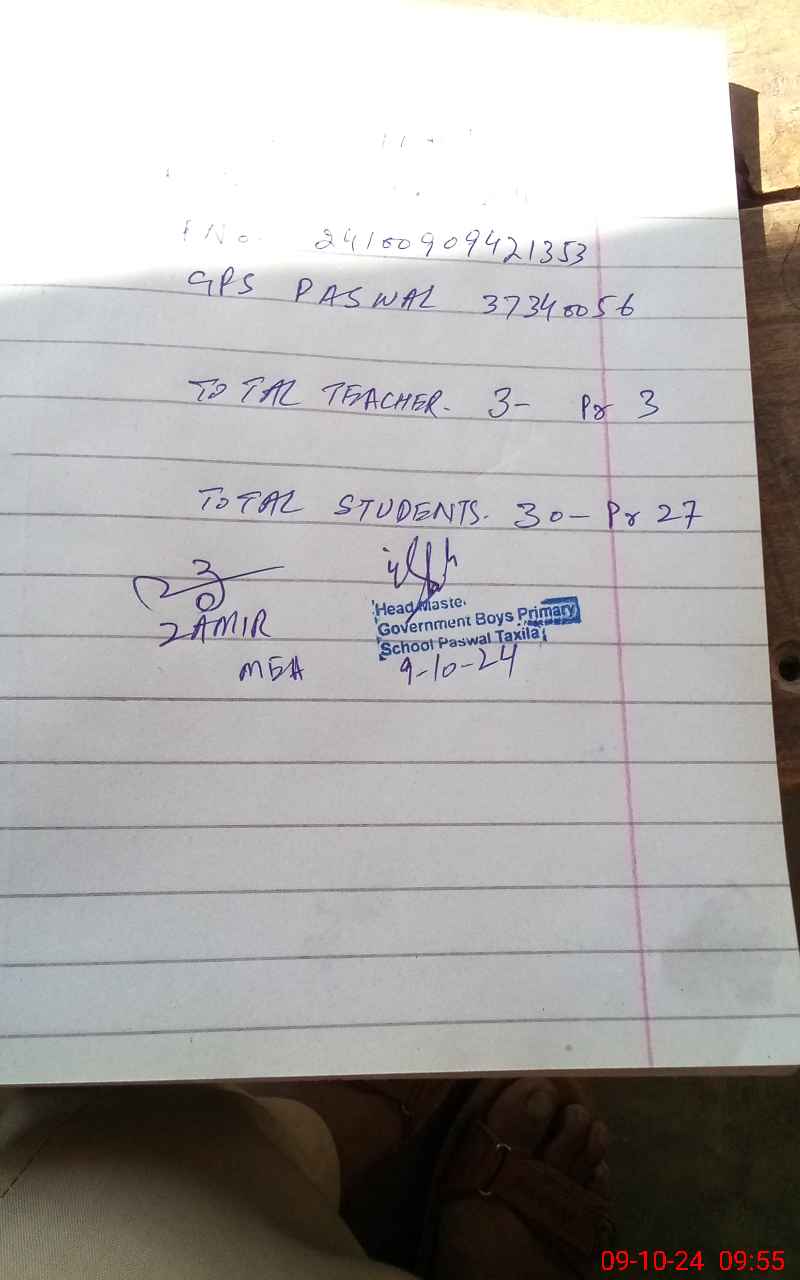 No. 24100909421353
GPS PASWAL 37340056
TOTAL TEACHER. 3- Pr 3
TOTAL STUDENTS. 30- Pr 27
ZAMIR
MEA
Head Maste
Government Boys Primary
School Paswal Taxila
9-10-24
09-10-24 09:55